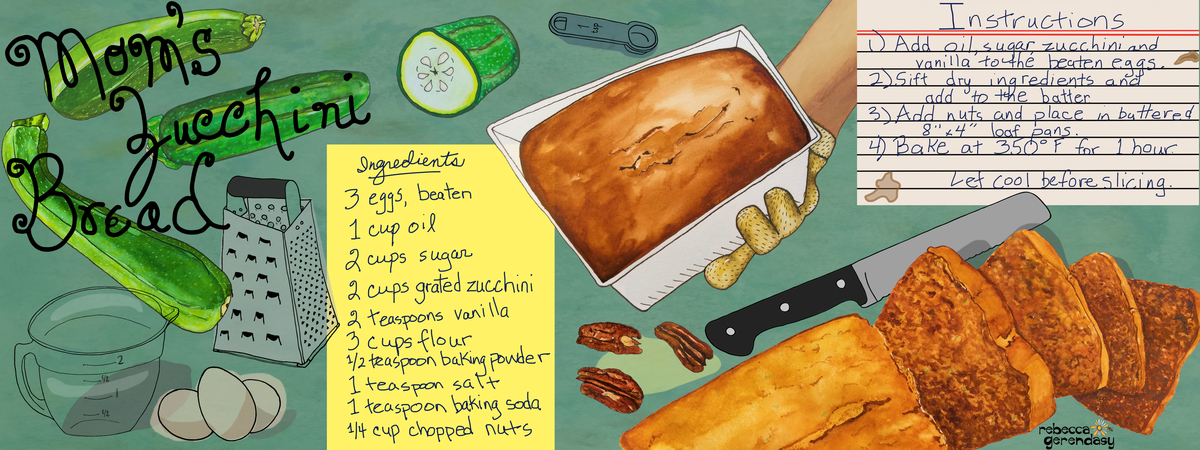 Mom's
Zucchini
Bread
1 cup
Ingredients
3 eggs, beaten
1 cup oil
2 cups sugar
2 cups grated zucchini
2 teaspoons vanilla
3 cups flour
1/2 teaspoon baking powder
1 teaspoon salt
1 teaspoon baking soda
1/4 cup chopped nuts
2
1/2
1
1/2
Instructions
1) Add oil, sugar, zucchini and
vanilla to the beaten eggs.
2) Sift dry ingredients and
add to the batter
3) Add nuts and place in buttered
8"x4" loaf pans.
4) Bake at 350°F for 1 hour.
Let cool before slicing.
rebecca
gerendasy